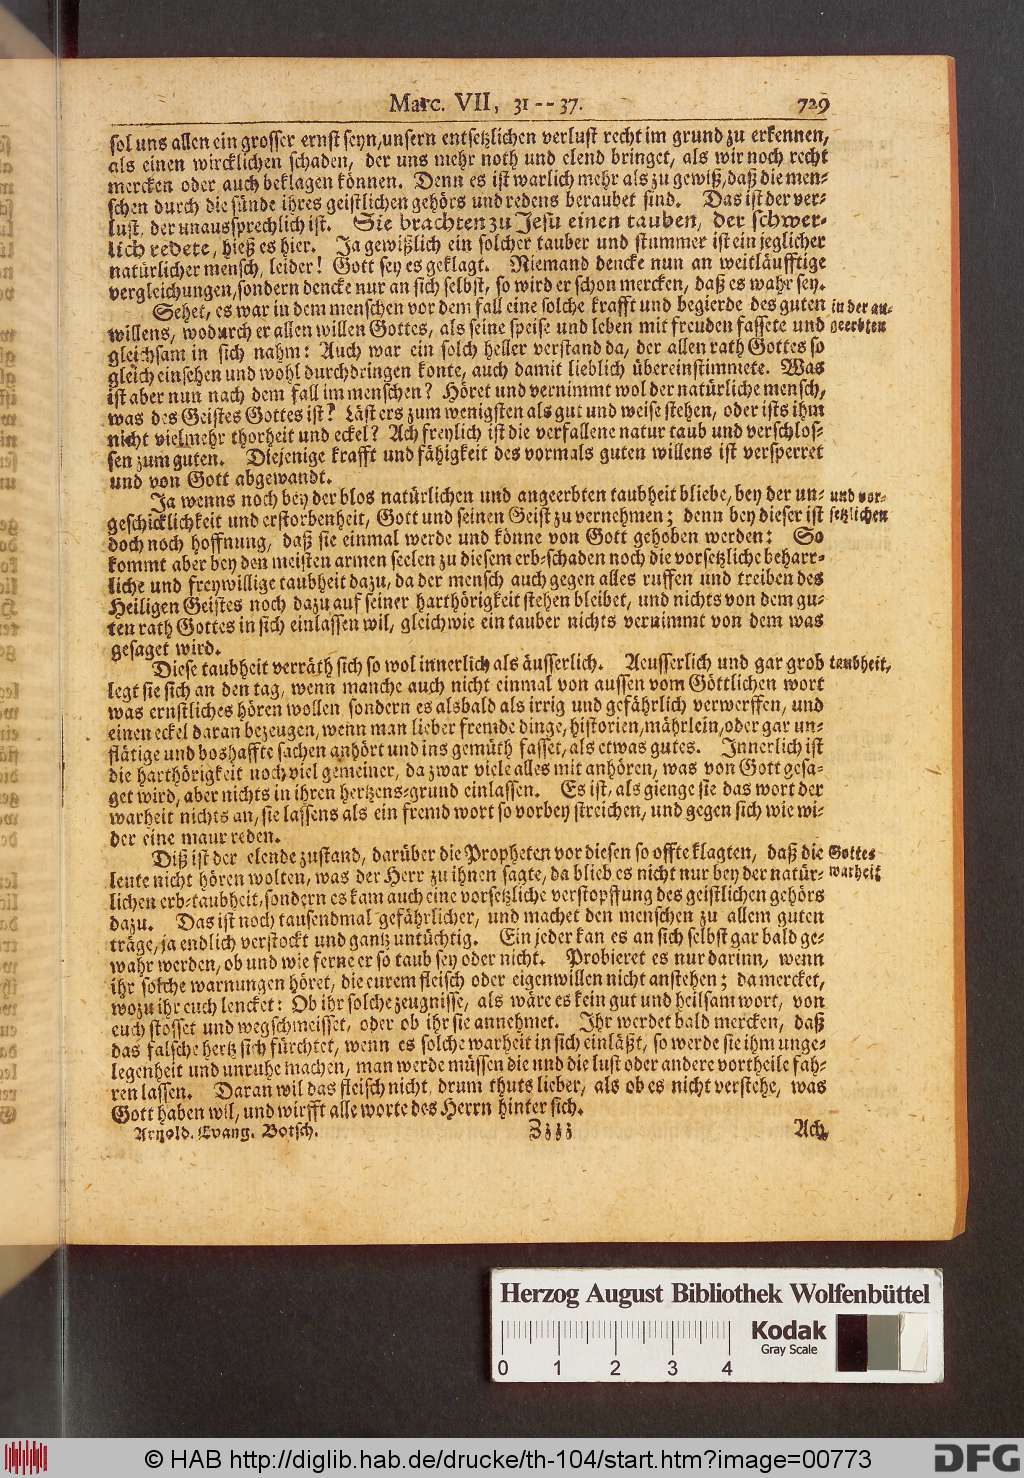 Marc. VII, 31--37. 729
sol uns allen ein grosser ernst seyn, unsern entsetzlichen verlust recht im grund zu erkennen,
als einen wircklichen schaden, der uns mehr noth und elend bringet, als wir noch recht
mercken oder auch beklagen können. Denn es ist warlich mehr als zu gewiß, daß die men-
schen durch die sünde ihres geistlichen gehörs und redens beraubet sind. Das ist der ver-
lust, der unaussprechlich ist. Sie brachten zu Jesu einen tauben, der schwer-
lich redete, hieß es hier. Ja gewißlich ein solcher tauber und stummer ist ein jeglicher
natürlicher mensch, leider! Gott sey es geklagt. Niemand dencke nun an weitläufftige
vergleichungen, sondern dencke nur an sich selbst, so wird er schon mercken, daß es wahr sey.
Sehet, es war in dem menschen vor dem fall eine solche krafft und begierde des guten in der an-
willens, wodurch er allen willen Gottes, als seine speise und leben mit freuden fassete und geerbten
gleichsam in sich nahm: Auch war ein solch heller verstand da, der allen rath Gottes so
gleich einsehen und wohl durchdringen konte, auch damit lieblich übereinstimmete. Was
ist aber nun nach dem fall im menschen? Höret und vernimmt wol der natürliche mensch,
was des Geistes Gottes ist? Läst ers zum wenigsten als gut und weise stehen, oder ists ihm
nicht vielmehr thorheit und eckel? Ach freylich ist die verfallene natur taub und verschlos-
sen zum guten. Diejenige krafft und fähigkeit des vormals guten willens ist versperret
und von Gott abgewandt.
Ja wenns noch bey der blos natürlichen und angeerbten taubheit bliebe, bey der un- und vor-
geschicklichkeit und erstorbenheit, Gott und seinen Geist zu vernehmen; denn bey dieser ist setzlichen
doch noch hoffnung, daß sie einmal werde und könne von Gott gehoben werden: So
kommt aber bey den meisten armen seelen zu diesem erb-schaden noch die vorsetzliche beharr-
liche und freywillige taubheit dazu, da der mensch auch gegen alles ruffen und treiben des
Heiligen Geistes noch dazu auf seiner harthörigkeit stehen bleibet, und nichts von dem gu-
ten rath Gottes in sich einlassen wil, gleichwie ein tauber nichts vernimmt von dem was
gesaget wird.
Diese taubheit verräth sich so wol innerlich als äusserlich. Aeusserlich und gar grob taubheit,
legt sie sich an den tag, wenn manche auch nicht einmal von aussen vom Göttlichen wort
was ernstliches hören wollen, sondern es alsbald als irrig und gefährlich verwerffen, und
einen eckel daran bezeugen, wenn man lieber fremde dinge, historien, mährlein, oder gar un-
flätige und boshaffte sachen anhört und ins gemüth fasset, als etwas gutes. Innerlich ist
die harthörigkeit noch viel gemeiner, da zwar viele alles mit anhören, was von Gott gesa-
get wird, aber nichts in ihren hertzens-grund einlassen. Es ist, als gienge sie das wort der
warheit nichts an, sie lassens als ein fremd wort so vorbey streichen, und gegen sich wie wi-
der eine maur reden.
Diß ist der elende zustand, darüber die Propheten vor diesen so offte klagten, daß die Gottes
leute nicht hören wolten, was der Herr zu ihnen sagte, da blieb es nicht nur bey der natür- warheit
lichen erb-taubheit, sondern es kam auch eine vorsetzliche verstopffung des geistlichen gehörs
dazu. Das ist noch tausendmal gefährlicher, und machet den menschen zu allem guten
träge, ja endlich verstockt und gantz untüchtig. Ein jeder kan es an sich selbst gar bald ge-
wahr werden, ob und wie ferne er so taub sey oder nicht. Probieret es nur darinn, wenn
ihr solche warnungen höret, die eurem fleisch oder eigenwillen nicht anstehen; da mercket,
wozu ihr euch lencket: Ob ihr solche zeugnisse, als wäre es kein gut und heilsam wort, von
euch stosset und wegschmeisset, oder ob ihr sie annehmet. Ihr werdet bald mercken, daß
das falsche hertz sich fürchtet, wenn es solche warheit in sich einläßt, so werde sie ihm unge-
legenheit und unruhe machen, man werde müssen die und die lust oder andere vortheile fah-
ren lassen. Daran wil das fleisch nicht, drum thuts lieber, als ob es nicht verstehe, was
Gott haben wil, und wirfft alle worte des Herrn hinter sich.
Arnold. Evang. Botsch. Zzzz Ach
Herzog August Bibliothek Wolfenbüttel
0 1 2 3 4
Kodak
Gray Scale
© HAB http://diglib.hab.de/drucke/th-104/start.htm?image=00773
DFG